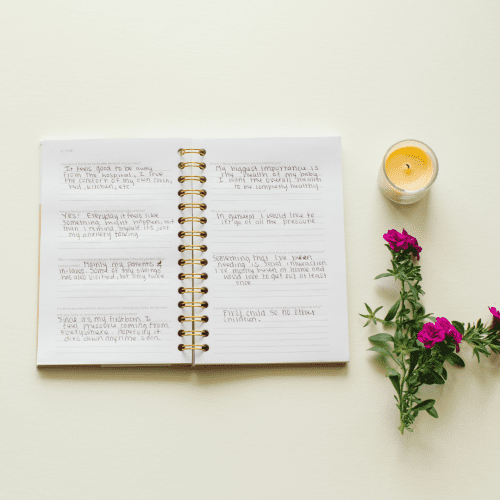 It feels good to be away
from the hospital. I love
the comfort of my own chair,
bed, kitchen, etc.
Yes. Everyday it feels like
something might happen, but
then I remind myself it's just
my anxiety talking
Mainly my parents &
in-laws. Some of my siblings
has also visited, but they live
Since it's my firstborn I
feel pressure coming from
everywhere. Hopefully it
dies down anytime soon.
My biggest importance is
the health of my baby.
I want the overall health
to be completely healthy
In general I would love to
of all the pressure
Something that I've been
needing is social interaction
I've mostly been at home and
would love to get out at least
once
First child so no other
children.